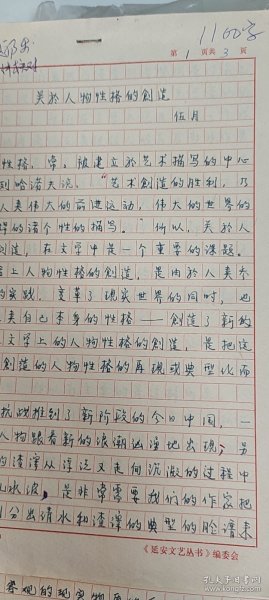 1100字
第 1 页共 3 页
关于人物性格的创造
伍月
性格，常，被建立于艺术描写的中心
"艺术创造的胜利，乃
人类伟大的前进运动，伟大的世界的
得的诸个性的描写。"所以，关于人
创造，在文学中是一个重要的课题。
上人物性格的创造，是由于人类参
的实践，变革了现实世界的同时，也
人类自己本身的性格——创造了新的
文学上的人物性格的创造，是把这
创造的人物性格的再现或典型化而
抗战推到了新阶段的今日中国，一
人物跟着新的浪潮汹涌地出现；另
的渣滓从浮泛又走向沉澈的过程中
水波，是非常需要我们的作家把
分出清水和渣滓的典型的脸谱来
《延安文艺丛书》编委会
客观的现实